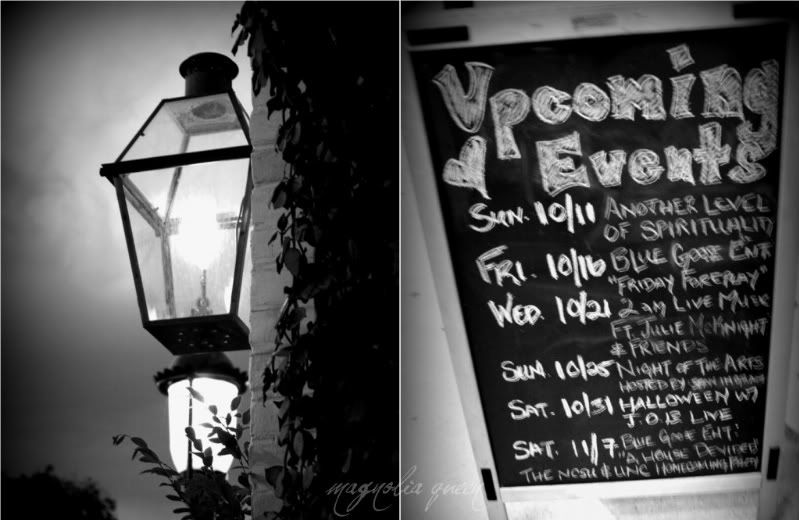 Upcoming
Events
SUN. 10/11 ANOTHER LEVEL
OF SPIRITUALITY
FRI. 10/16 BLUE GOOSE ENT.
"FRIDAY FOREPLAY"
WED. 10/21 2 am LIVE MUSIC
FT. JULIE McKNIGHT
& FRIENDS
SUN. 10/25 NIGHT OF THE ARTS
HOSTED BY
SAT. 10/31 HALLOWEEN W/
J.O.B LIVE
SAT. 11/7 BLUE GOOSE ENT:
"A HOUSE DEVIDED"
THE NCSU & UNC HOMECOMING PARTY
magnolia queen